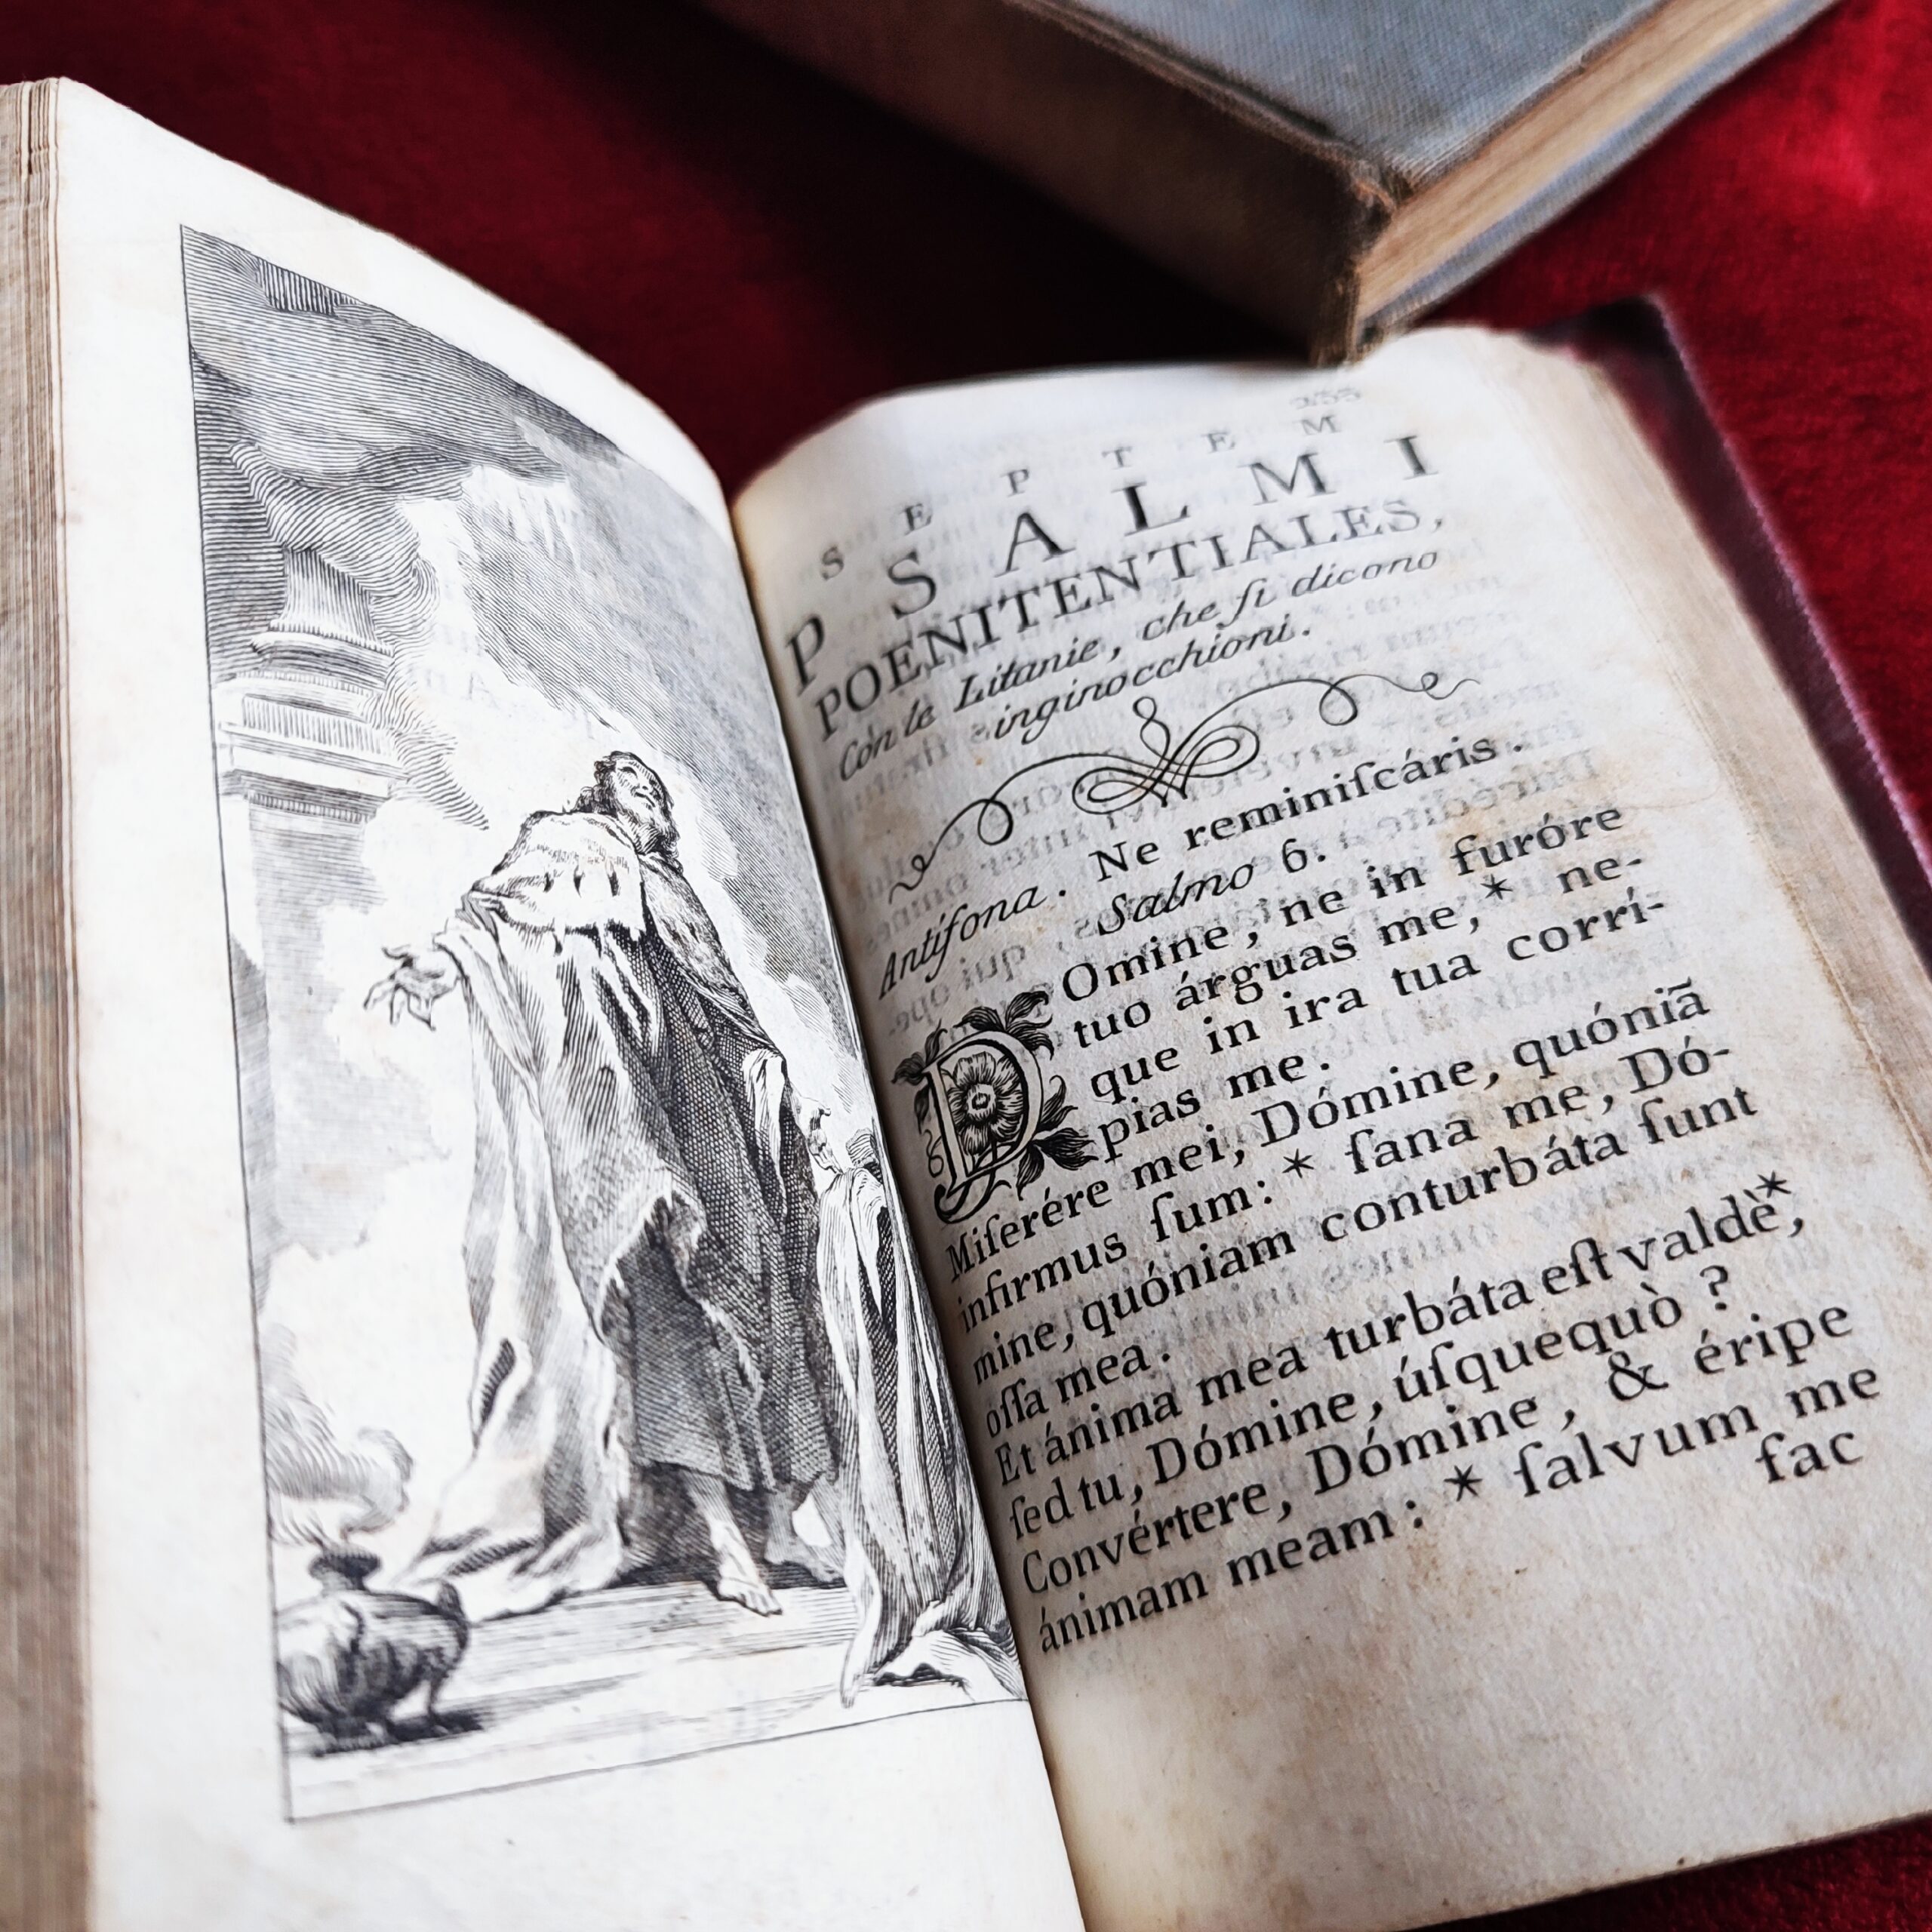 SEPTEM
PSALMI
POENITENTIALES,
Con le Litanie, che ſi dicono
inginocchioni.
Antifona. Ne reminiſcáris.
Salmo 6.
DOmine, ne in furóre
tuo árguas me,* ne-
que in ira tua corrí-
pias me.
Miſerére mei, Dómine, quóniã
infirmus ſum: * ſana me, Dó-
mine, quóniam conturbáta ſunt
oſſa mea.
Et ánima mea turbáta eſt valdè, *
ſed tu, Dómine, úſquequò ?
Convértere, Dómine, & éripe
ánimam meam: * ſalvum me
fac